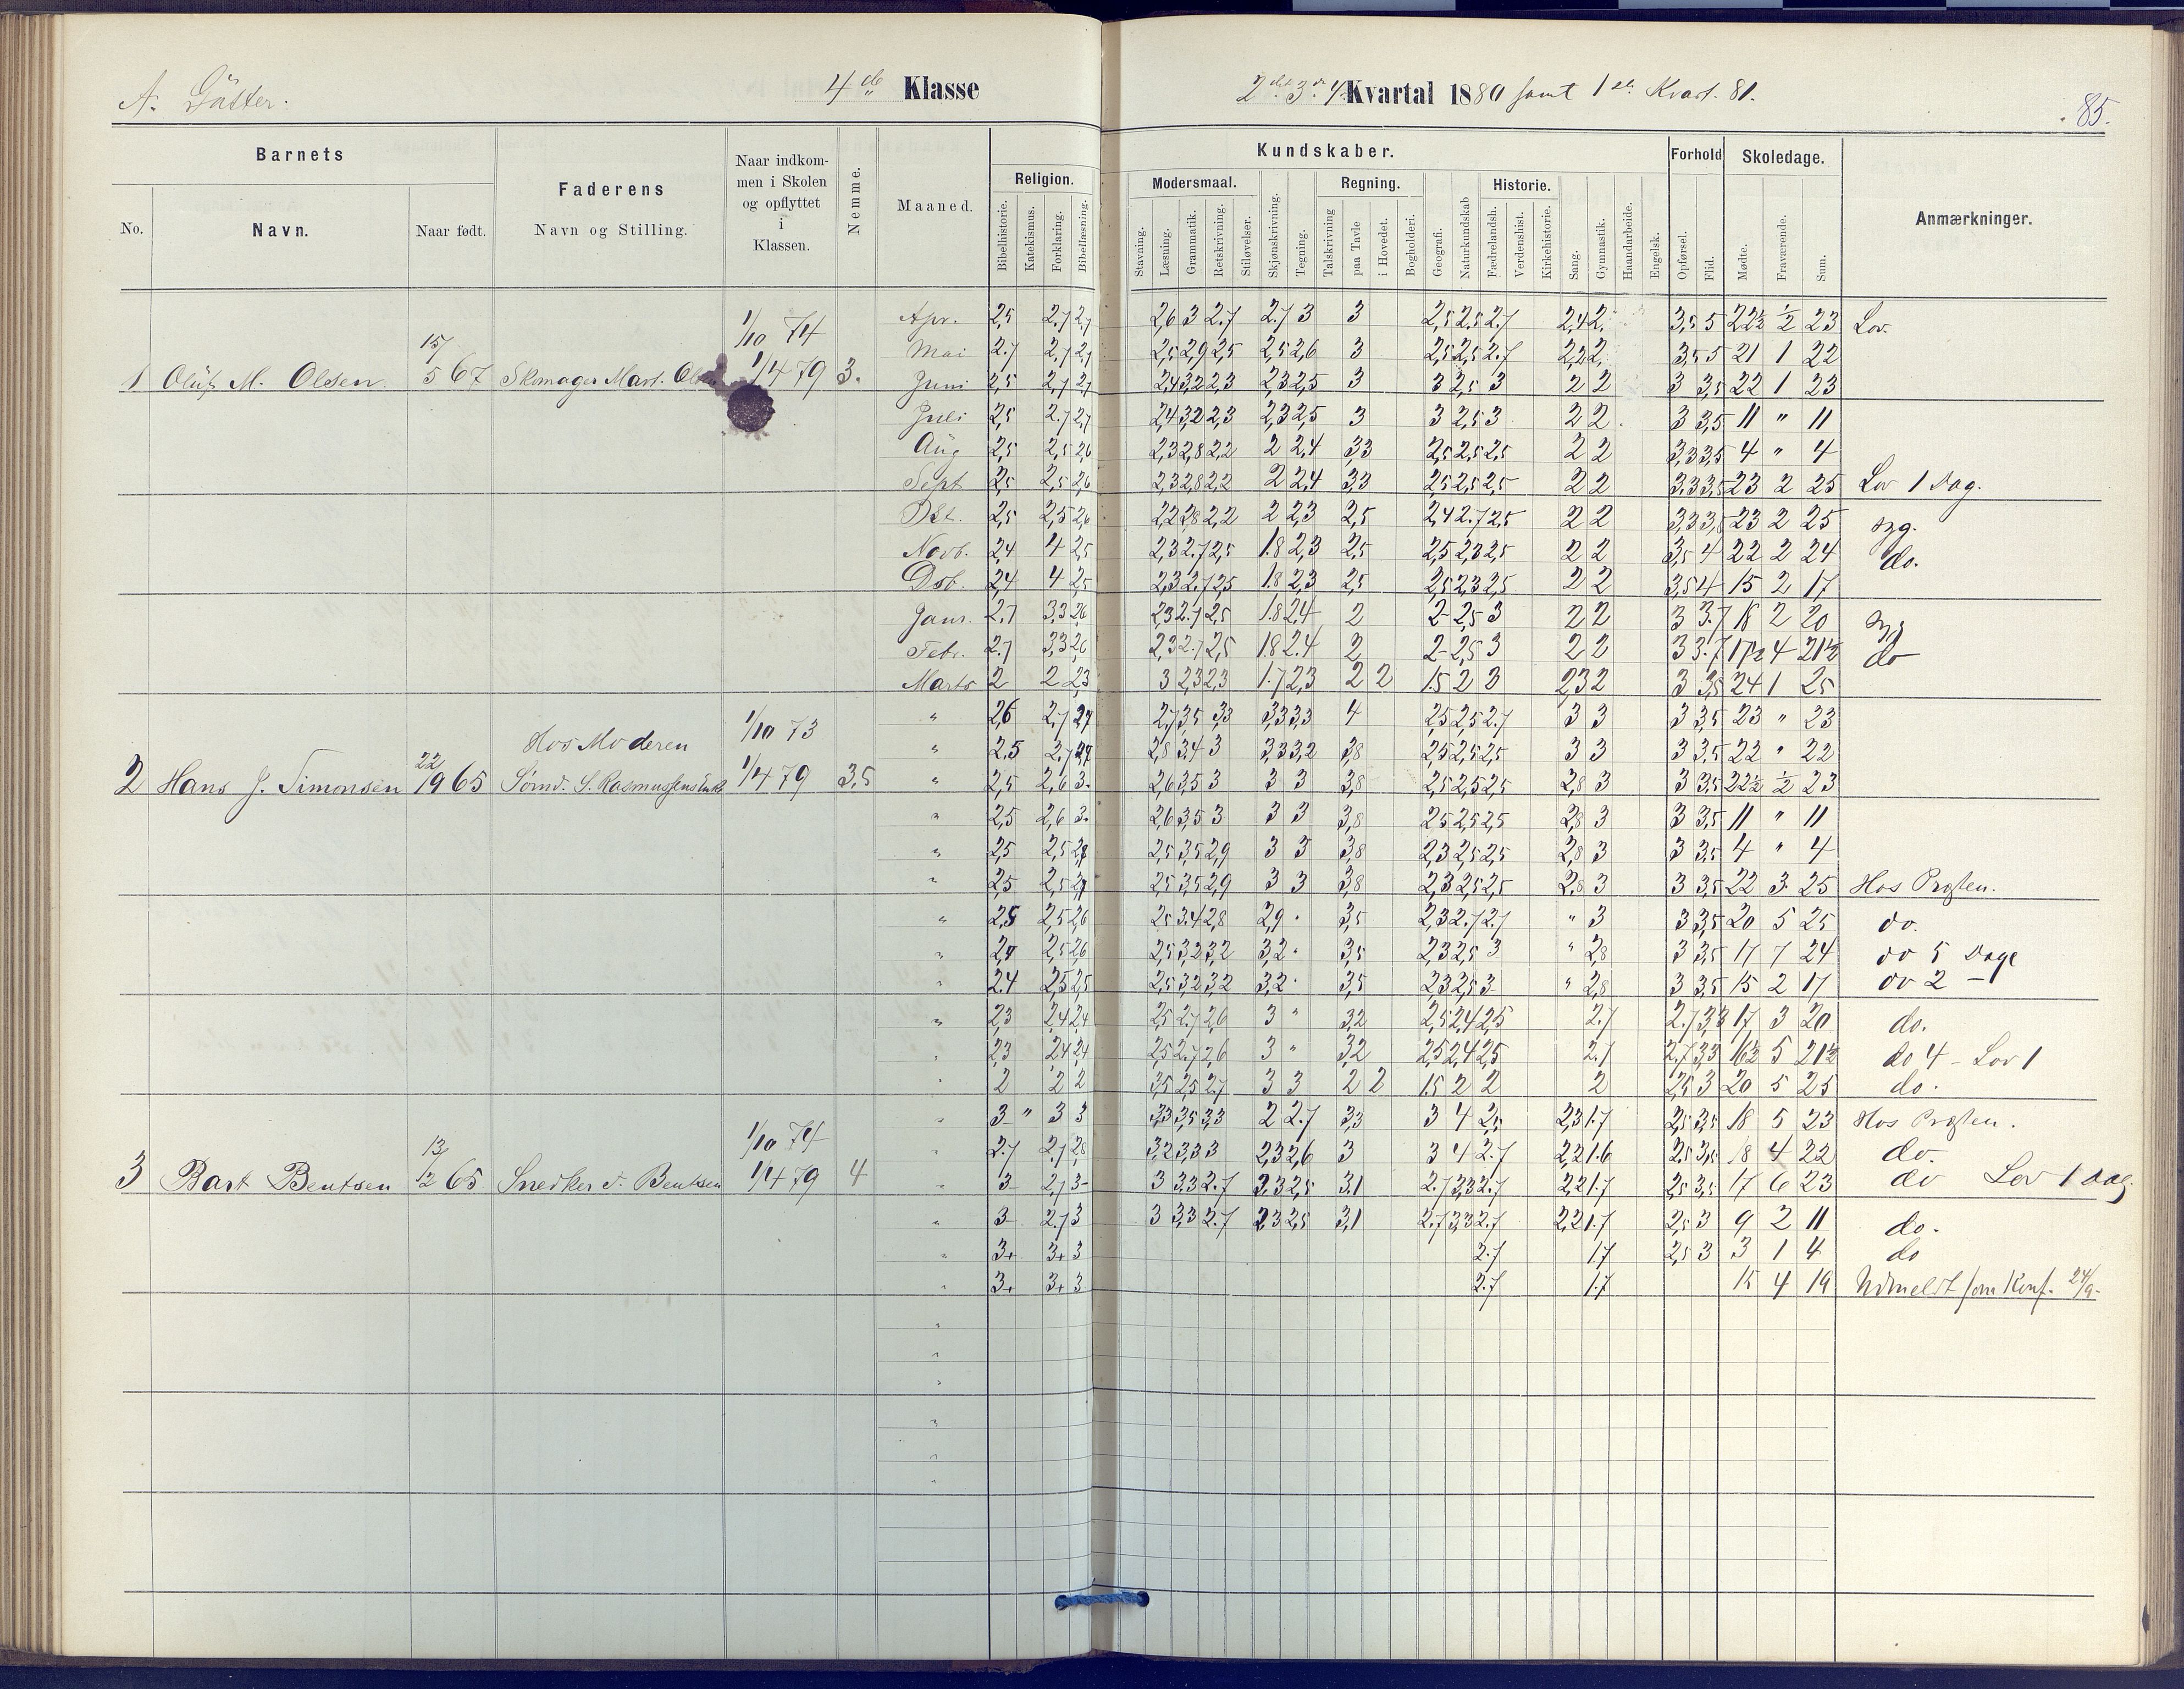 A. Gutter.
4de Klasse
2det 3die 4 Kvartal 1880 samt 1ste Kvart. 81.
85.
Barnets
No.
Navn.
Naar født.
Faderens
Navn og Stilling.
Naar indkom-
men i Skolen
og opflyttet
i
Klassen.
Nemme.
Maaned.
Kundskaber.
Religion.
Bibelhistorie.
Katekismus.
Forklaring.
Bibellæsning.
Modersmaal.
Stavning.
Læsning.
Grammatik.
Retskrivning.
Stiløvelser.
Skjønskrivning.
Tegning.
Regning.
Talskrivning
paa Tavle
i Hovedet.
Bogholderi.
Geografi.
Naturkundskab
Historie.
Fædrelandsh.
Verdenshist.
Kirkehistorie.
Sang.
Gymnastik.
Haandarbeide.
Engelsk.
Forhold
Opførsel.
Flid.
Skoledage.
Mødte.
Fraværende.
Sum.
Anmærkninger.
1 Oluf M. Olsen 15/5 67 Skomager Mart. Olsen 1/10 74 1/4 79 3.
Apr. 2,5 2,7 2,7 2,6 3 2.7 2.7 3 3 2,5 2,5 2.7 2,4 2. 3,5 5 22½ ½ 23 Lov.
Mai 2.7 2,7 2,7 2,5 2,9 2,5 2,5 2,6 3 2,5 2,5 2.7 2,2 2, 3,5 5 21 1 22
Juni 2,5 2,7 2,7 2,4 3,2 2,3 2,3 2,5 3 3 2,5 3 2 2 3 3,5 22 1 23
Juli 2,5 2.7 2,7 2,4 3,2 2,3 2,3 2,5 3 3 2,5 3 2 2 3 3,5 11 " 11
Aug 2,5 2,5 2,6 2,3 2,8 2,2 2 2,4 3,3 2,5 2,5 2,5 2 2 3,3 3,5 4 " 4
Sept 2,5 2,5 2,6 2,3 2,8 2,2 2 2,4 3,3 2,5 2,5 2,5 2 2 3,3 3,5 23 2 25 Lov 1 Dag.
Okt. 2,5 2,5 2,6 2,2 2,8 2,2 2 2,3 2,5 2,4 2.7 2,5 2 2 3,3 3,5 23 2 25 syg.
Novb. 2,4 4 2,5 2,3 2.7 2,5 1.8 2,3 2,5 2,5 2,3 2,5 2 2 3,5 4 22 2 24 do.
Dsb. 2,4 4 2,5 2,3 2,7 2,5 1.8 2,3 2,5 2,5 2,3 2,5 2 2 3,5 4 15 2 17
Janr. 2.7 3,3 2,6 2,3 2.7 2,5 1.8 2,4 2 2- 2,5 3 2 2 3 3.7 18 2 20 syg
Febr. 2.7 3,3 2,6 2,3 2.7 2,5 1.8 2.4 2 2- 2,5 3 2 2 3 3.7 17½ 4 21½ do
Marts 2 2 2,3 3 2,3 2,3 1.7 2,3 2 2 1.5 2 3 2,3 2 3 3,5 24 1 25
2 Hans J. Simonsen 22/9 65 Hos Moderen 1/10 73 1/4 79 3,5
" 2,6 2,7 2,7 2,7 3,5 3,3 3,3 3,3 4 2,5 2,5 2.7 3 3 3 3,5 23 " 23
" 2.5 2.7 2,7 2,8 3.4 3 3,3 3,2 3,8 2,5 2,5 2,5 3 3 3 3,5 22 " 22
" 2,5 2,6 3. 2,6 3,5 3 3 3 3,8 2,5 2,5 2,5 2,8 3 3 3,5 22½ ½ 23
" 2,5 2,6 3. 2,6 3,5 3 3 3 3,8 2,5 2,5 2,5 2,8 3 3 3,5 11 " 11
" 2,5 2,5 2,7 2,5 3,5 2,9 3 3 3,8 2,3 2,5 2,5 2,8 3 3 3,5 4 " 4
" 2,5 2,5 2,7 2,5 3,5 2,9 3 3 3,8 2,3 2,5 2,5 2,8 3 3 3,5 22 3 25 Hos Presten.
" 2,5 2,5 2,6 2,5 3.4 2,8 2,9 . 3,5 2,3 2.7 2.7 " 3 3 3,5 20 5 25 do.
" 2,4 2,5 2,6 2,5 3,2 3,2 3,2 . 3,5 2,3 2,5 3 " 2,8 3 3,5 17 7 24 do 5 Dage
" 2.4 2,5 2,5 2,5 3,2 3,2 3,2 . 3,5 2,3 2,5 3 " 2,8 3 3,5 15 2 17 do 2 -
" 2,3 2,4 2,4 2,5 2.7 2,6 3 " 3,2 2,5 2,4 2,5 2.7 2.7 3,3 17 3 20 do.
" 2,3 2,4 2,4 2,5 2.7 2,6 3 " 3,2 2,5 2,4 2,5 2.7 2.7 3,3 16½ 5 21½ do 4 - Lov 1
" 2 2 2 3,5 2,5 2,7 3 3 2 2 1.5 2 2 2 2,5 3 20 5 25 do.
3 Bart Bentsen 13/12 65 Snedker T. Bentsen 1/10 74 1/4 79 4
" 3 " 3 3 3,3 3,5 3,3 2 2.7 3,3 3 4 2,5 2,3 1.7 2,5 3,5 18 5 23 Hos Presten.
" 2.7 2,7 2,8 3,2 3,3 3 2,3 2,6 3 3 4 2.7 2,2 1.6 2,5 3,5 18 4 22 do.
" 3- 2,7 3- 3 3,3 2.7 2,3 2,5 3,1 2.7 3,3 2.7 2,2 1.7 2,5 3,5 17 6 23 do Lov 1 Dag.
" 3- 2,7 3 3 3,3 2.7 2,3 2,5 3,1 2.7 3,3 2.7 2,2 1.7 2,5 3 9 2 11 do.
" 3+ 3+ 3 2.7 1.7 2,5 3 3 1 4 do
" 3+ 3+ 3 2.7 1.7 15 4 19 Udmeldt som Konf. 24/9.